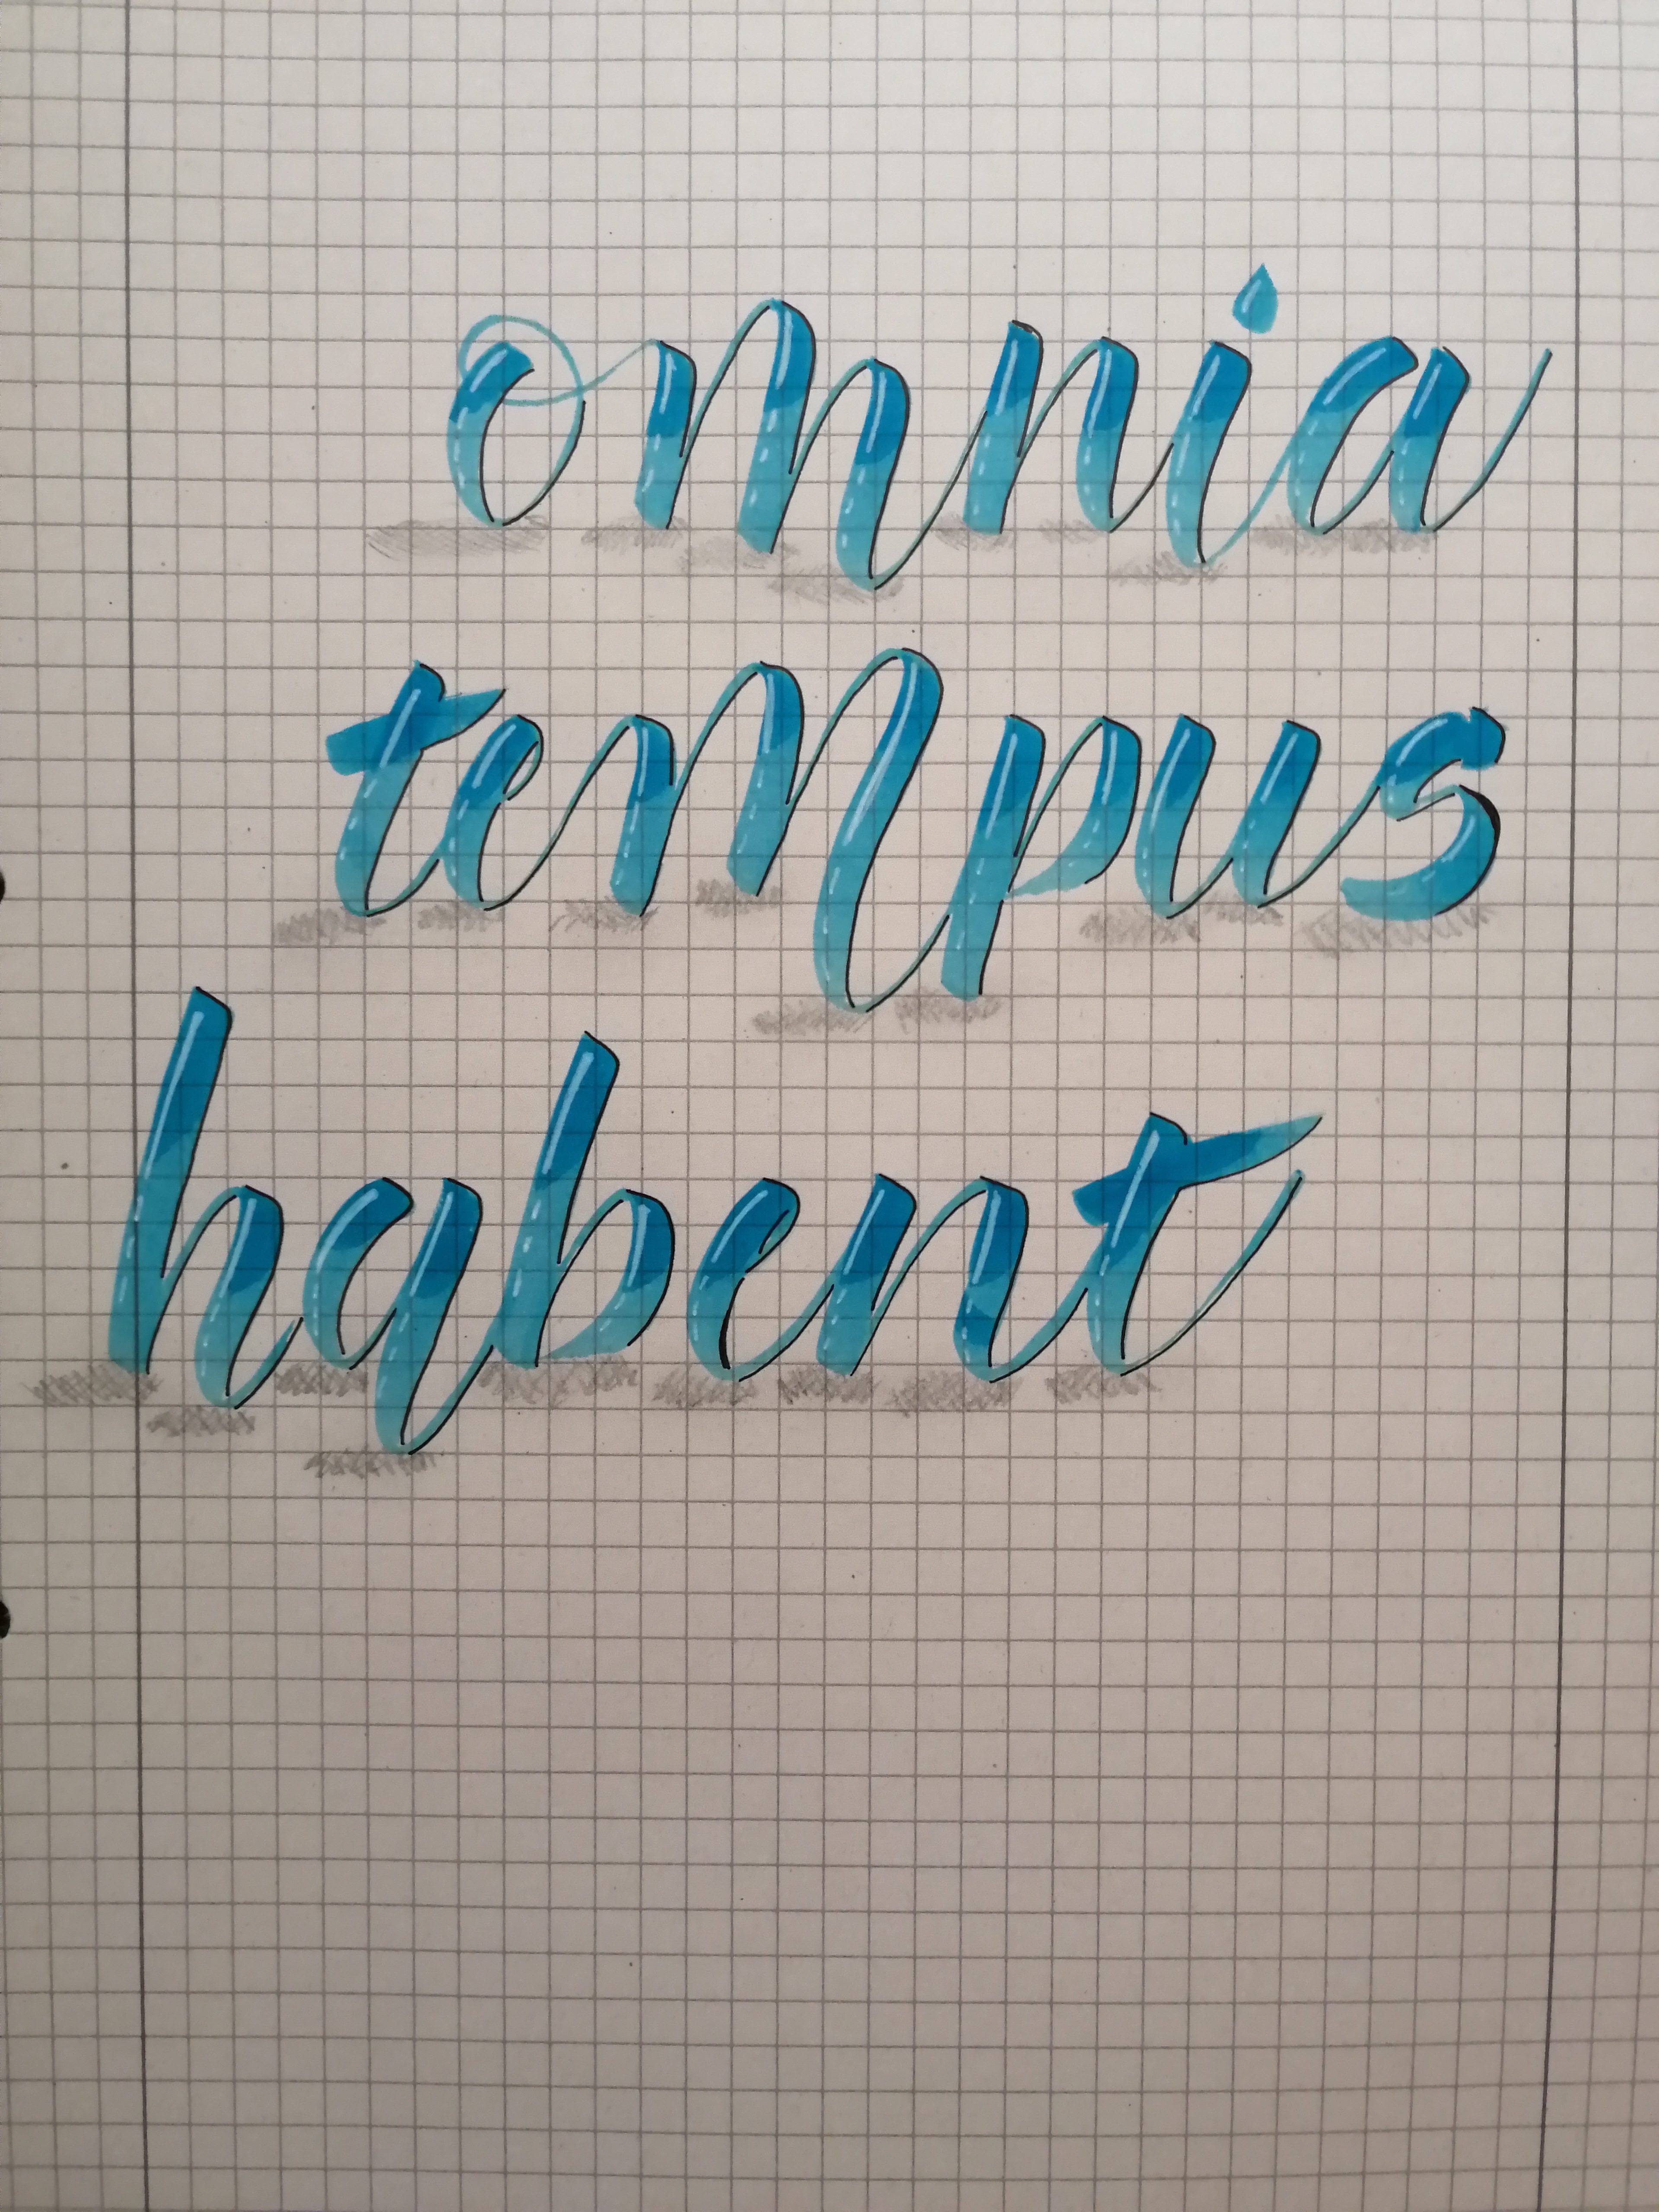 omnia
tempus
habent